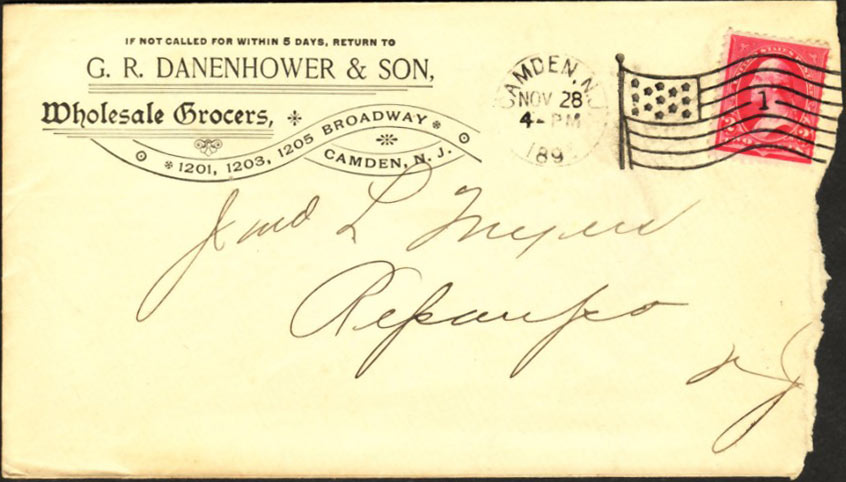 IF NOT CALLED FOR WITHIN 5 DAYS, RETURN TO
G. R. DANENHOWER & SON,
Wholesale Grocers,
1201, 1203, 1205 BROADWAY
CAMDEN, N. J.
CAMDEN, N.J.
NOV 28
4- PM
189
1
L Myers
Repaupo
N J